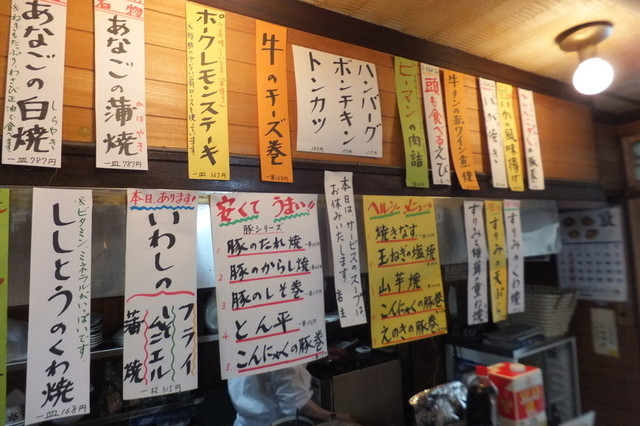 あなごの白焼
しらやき
一皿 787円
名物
あなごの蒲焼
かばやき
一皿 787円
ポークレモンステーキ
一皿 367円
牛のチーズ巻
ハンバーグ
ボンチキン
トンカツ
ピーマンの肉詰
頭も食べるえび
牛タンの赤ワイン煮
いか焼き
いかの風味揚げ
の豚巻
※ビタミン、ミネラルがいっぱいです。
ししとうのくわ焼
一皿 168円
本日、あります!
いわしの
フライ
ムニエル
蒲焼
一枚 315円
安くて うまい!!
豚シリーズ
1 豚のたれ焼
2 豚のからし焼
3 豚のしそ巻
4 とん平
5 こんにゃくの豚巻
本日はサービスのスープは、
お休みいたします。店主
ヘルシーメニュー
焼きなす
玉ねぎの塩焼
山芋焼
こんにゃくの豚巻
えのきの豚巻
すりみと椎茸の重ね焼
すりみの天ぷら
すりみのくわ焼